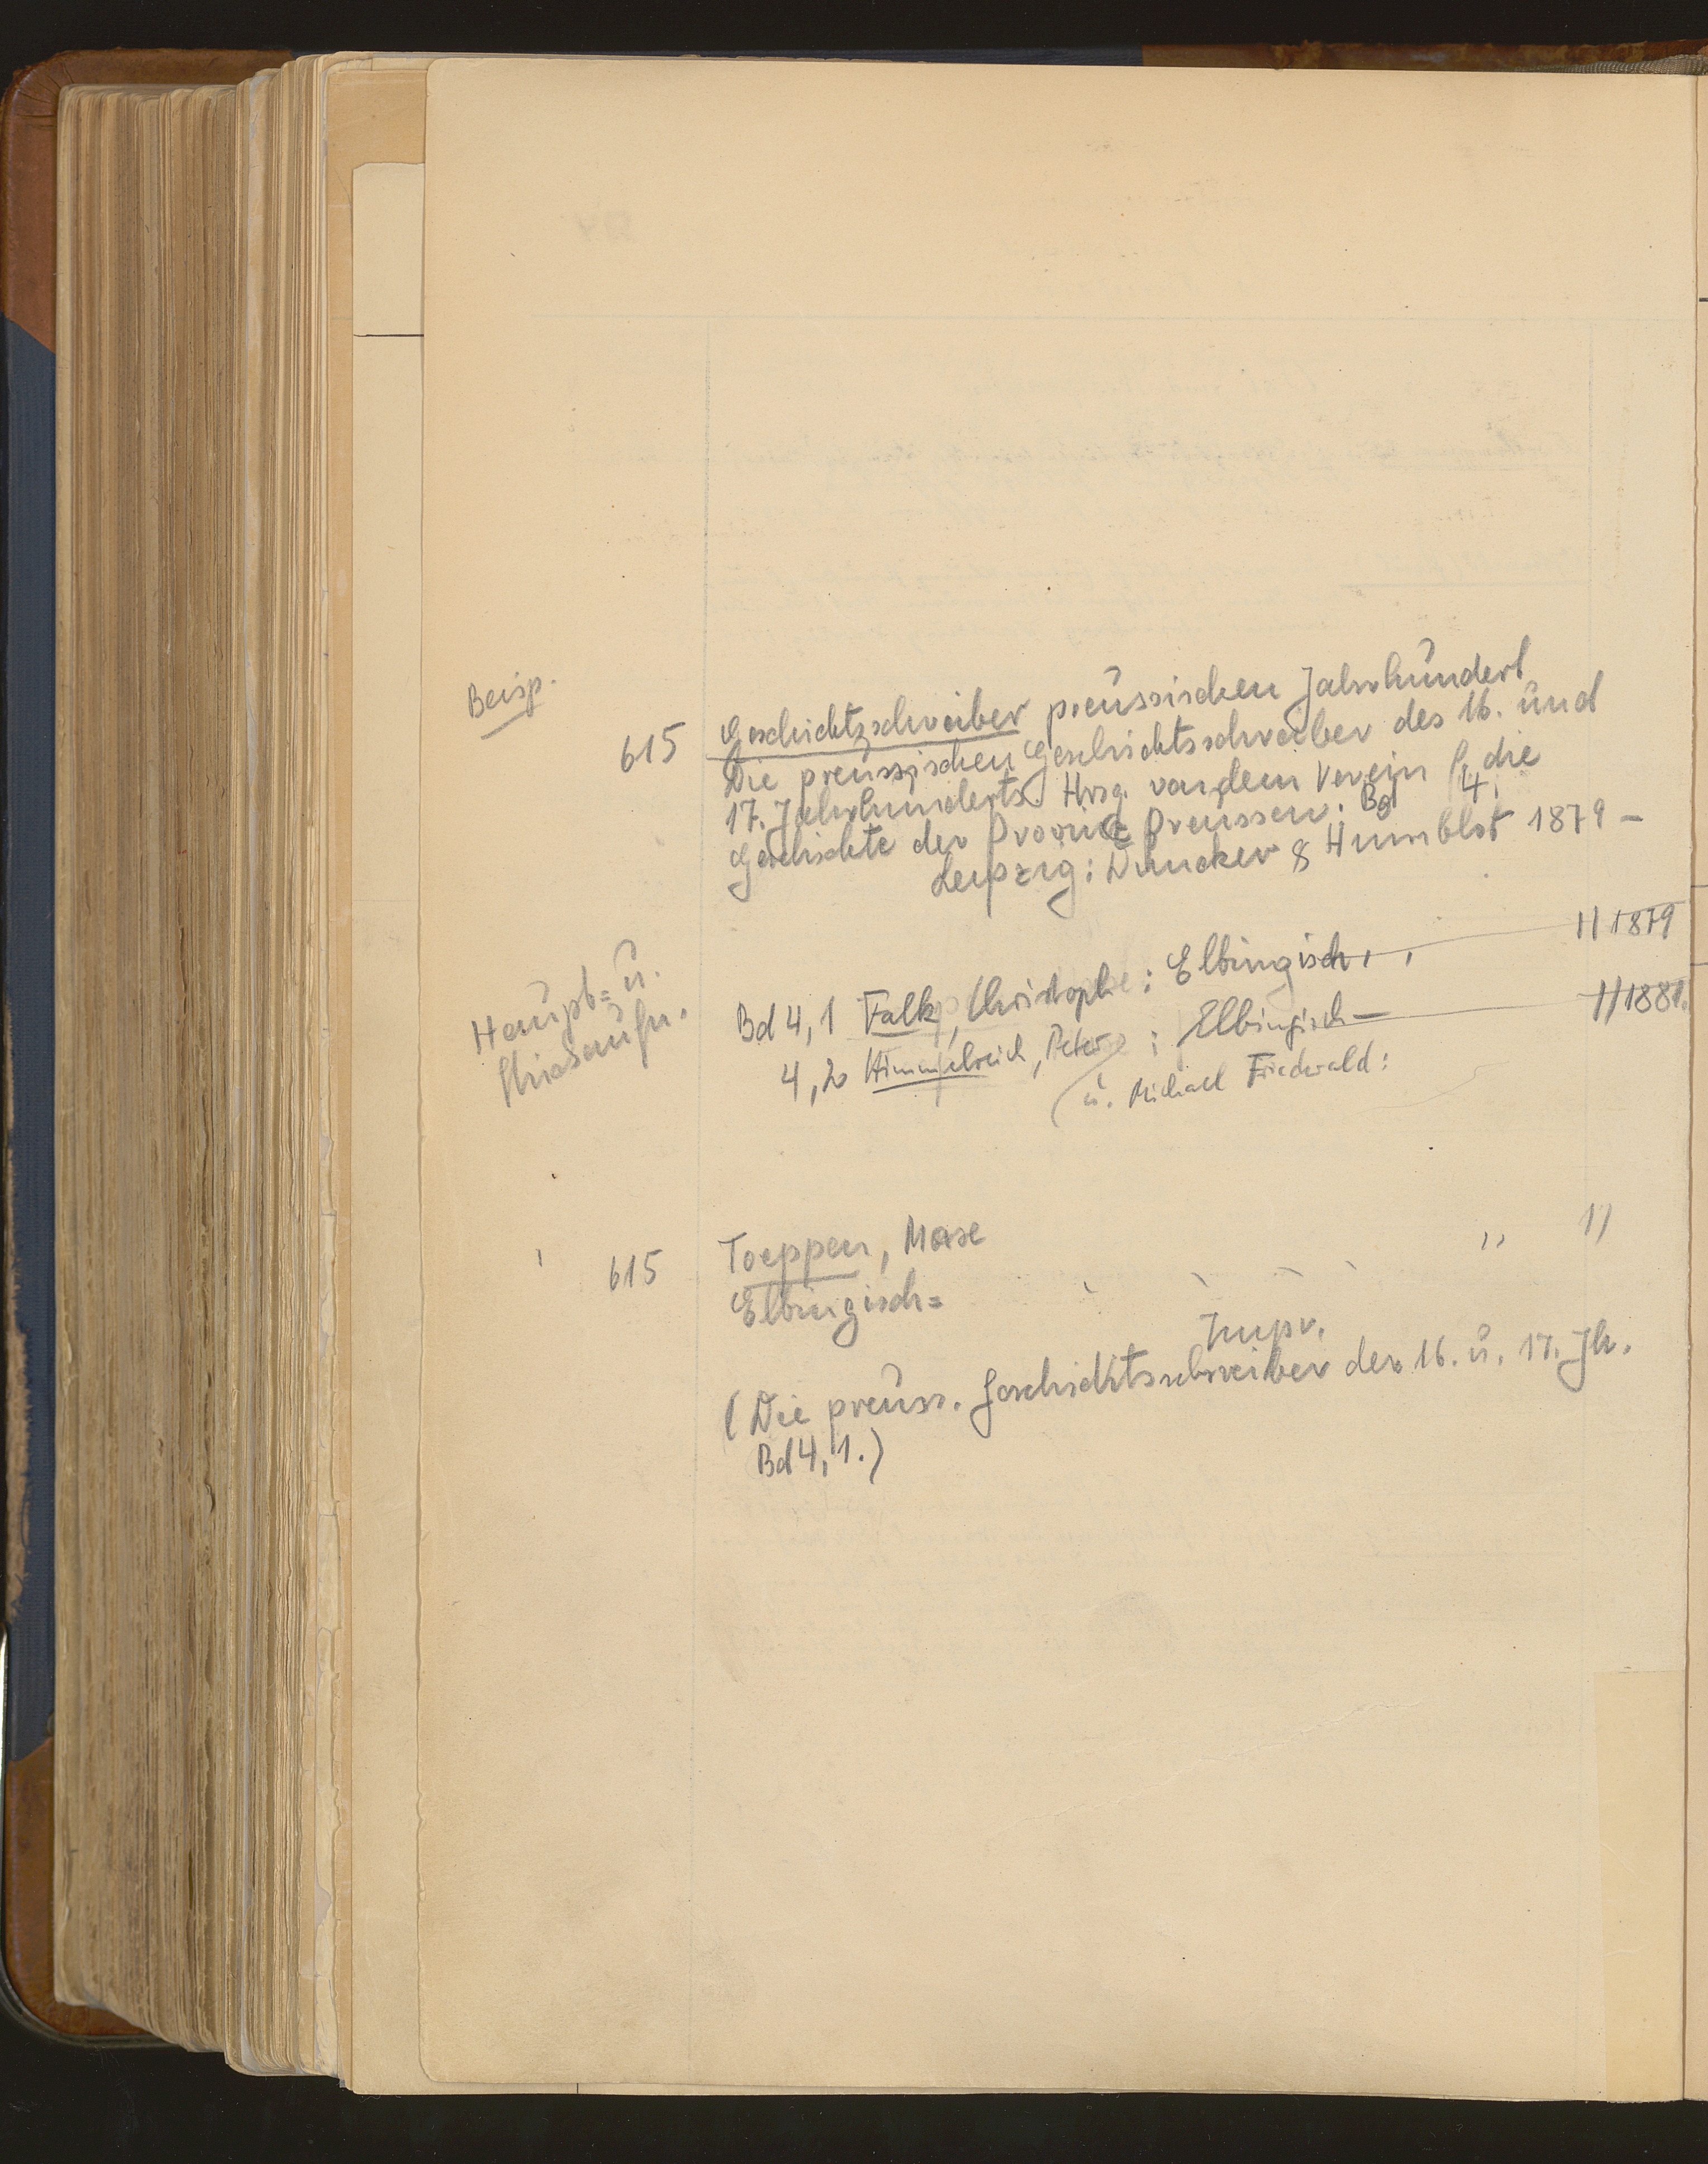 Beisp.
615 Geschichtsschreiber preussischen Jahrhundert
Die preussischen Geschichtsschreiber des 16. und
17. Jahrhunderts. Hrsg. von dem Verein f. die
Geschichte der Provinz Preussen. Bd 4.
Leipzig: Duncker & Humblot 1879 –
Haupt= u.
Bd 4,1 Falk, Christoph: Elbingisch.. 11 1879
4,2 Himmelreich, Peter: Elbingisch – 11 1881.
(u. Michael Friedwald:
615 Toeppen, Maxe ,, 11
Elbingisch=
(Die preuss. Geschichtsschreiber der 16. u. 17. Jh.
Bd 4, 1.)